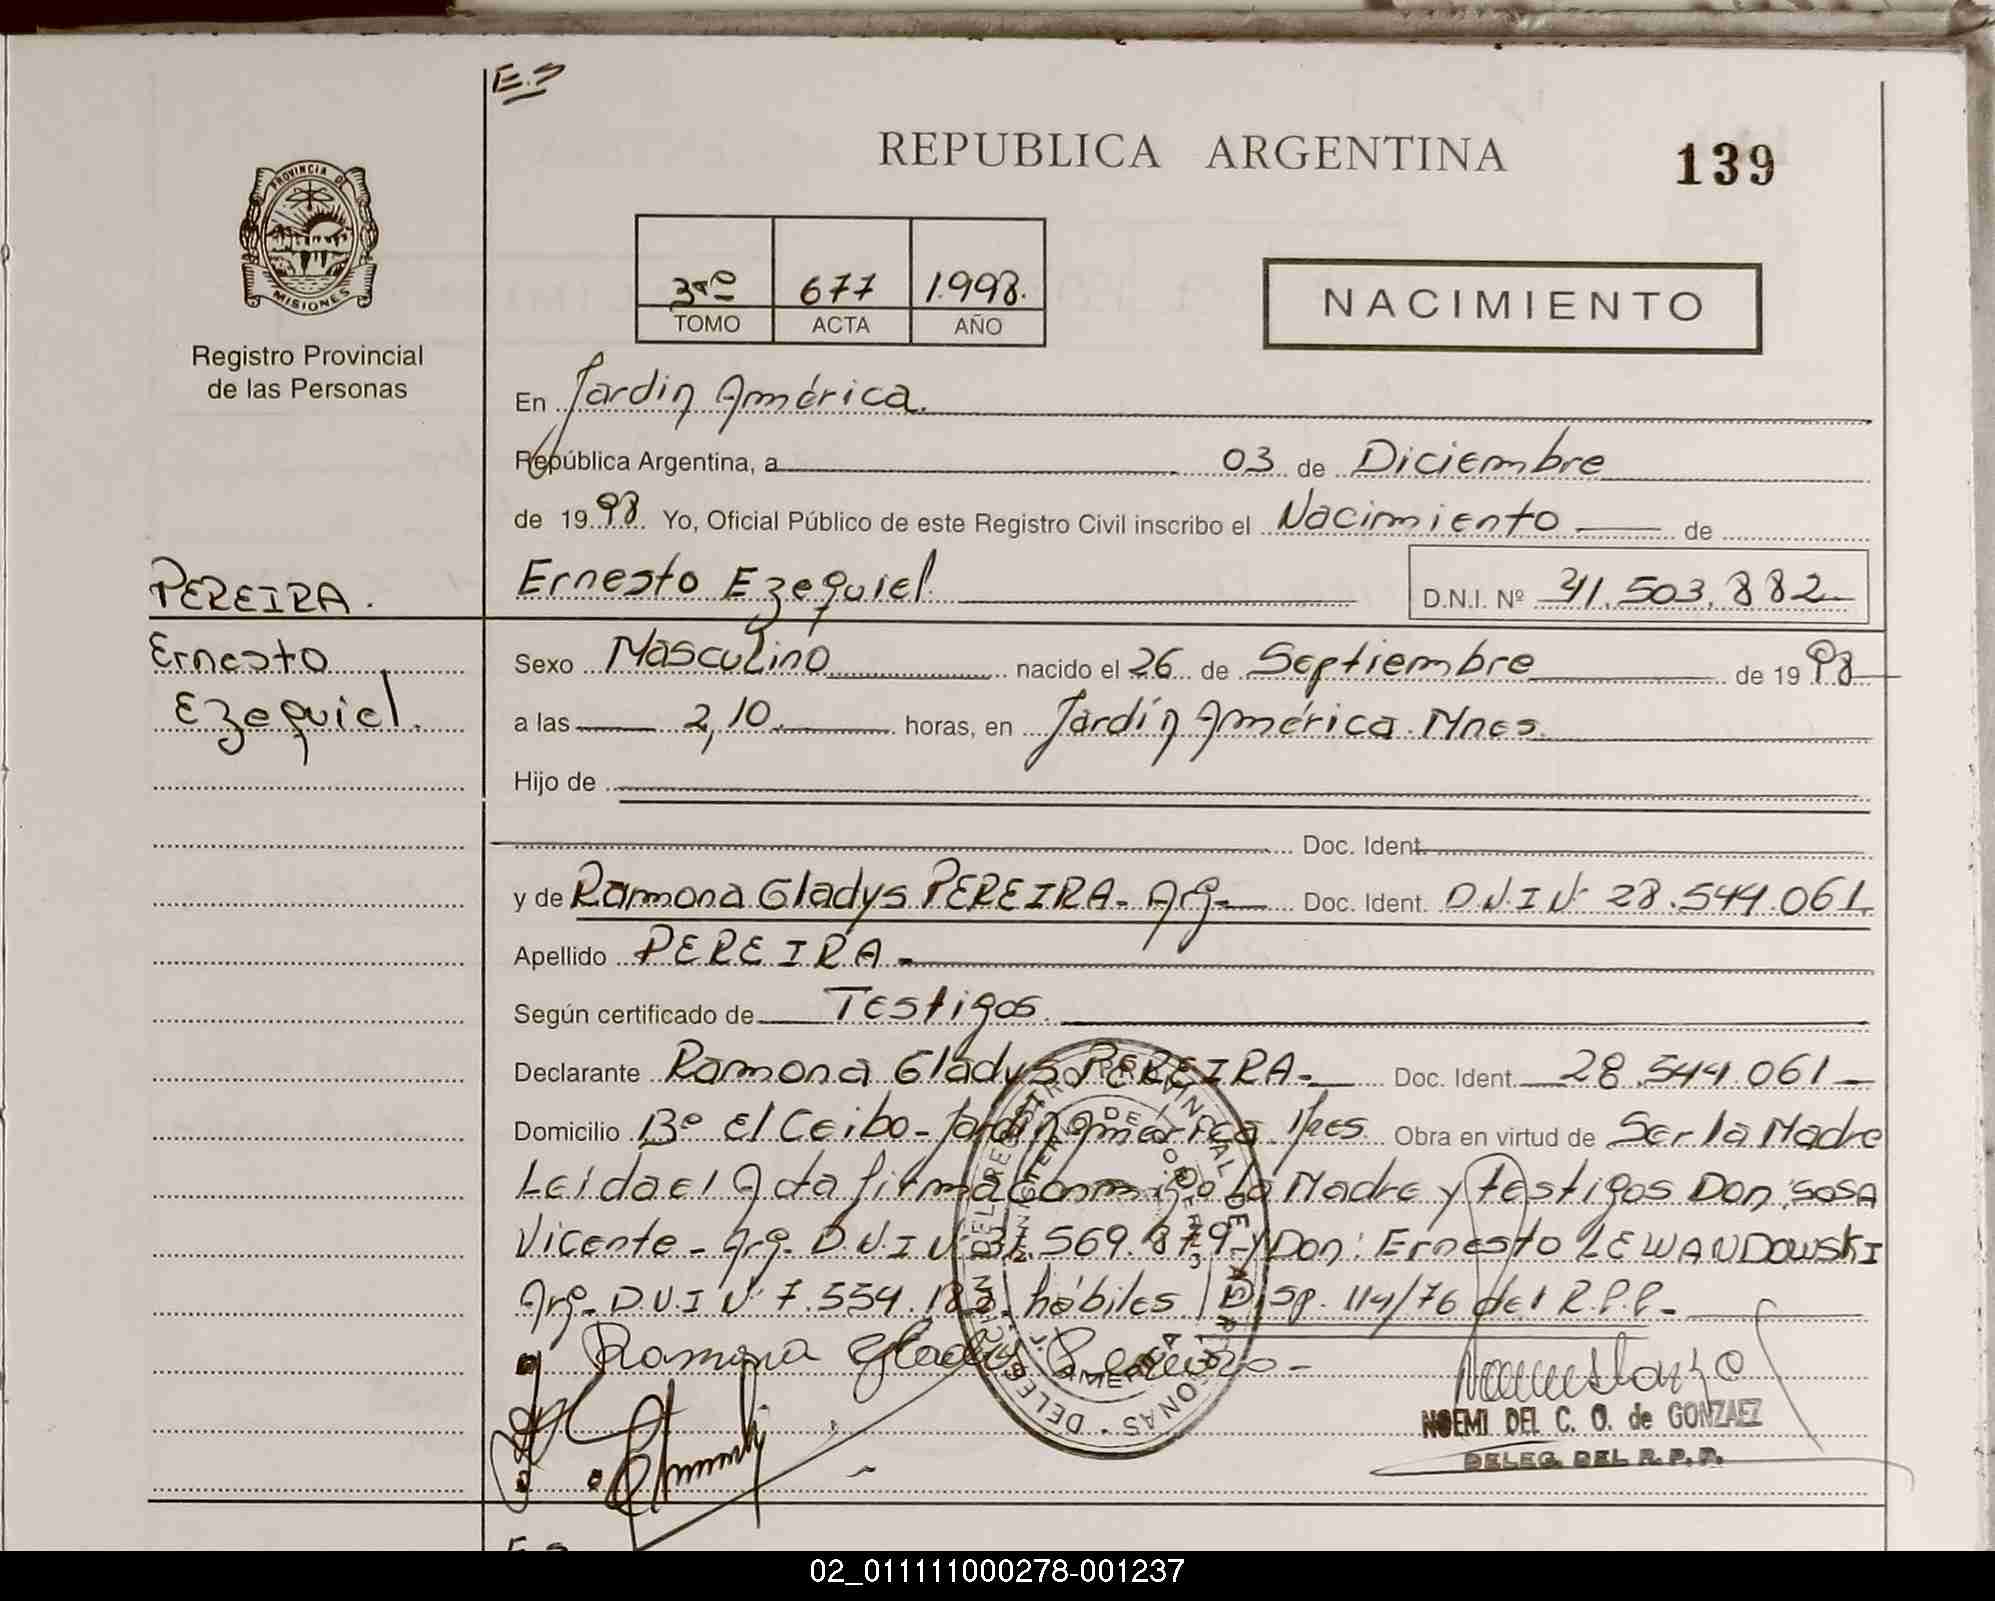 E.S
REPUBLICA ARGENTINA
139
PROVINCIA DE
MISIONES
Registro Provincial
de las Personas
3ro 677 1.998.
TOMO ACTA AÑO
NACIMIENTO
En Jardin América.
República Argentina, a 03 de Diciembre
de 1998 Yo, Oficial Público de este Registro Civil inscribo el Nacimiento de
PEREIRA.
Ernesto
Ezequiel.
Ernesto Ezequiel. D.N.I. Nº 41.503.882
Sexo Masculino nacido el 26 de Septiembre de 1998
a las 2,10 horas, en Jardín América. Mnes.
Hijo de
Doc. Ident.
y de Ramona Gladys PEREIRA - Arg- Doc. Ident. D.N.I Nº 28.544.061.
Apellido PEREIRA -
Según certificado de Testigos.
Declarante Ramona Gladys PEREIRA- Doc. Ident. 28.544.061
Domicilio Bº El Ceibo - Jardín América. Mnes. Obra en virtud de Ser la Madre
Leida el Acta firma conmigo la Madre y testigos Don: SOSA
Vicente - Arg. D.N.I Nº 569. y Don: Ernesto LEWANDOWSKI
Arg. D.N.I Nº 7.554. hábiles Disp. 114/76 del R.P.P.
Ramona Gladys Pereira -
NOEMI DEL C. O. de GONZAEZ
DELEG. DEL R.P.P.
E.S
02_011111000278-001237